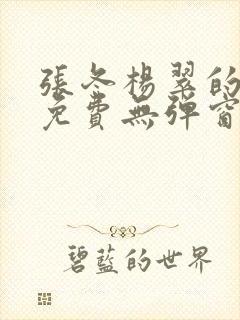 張冬楊翠的
免費無彈窗
碧藍的世界